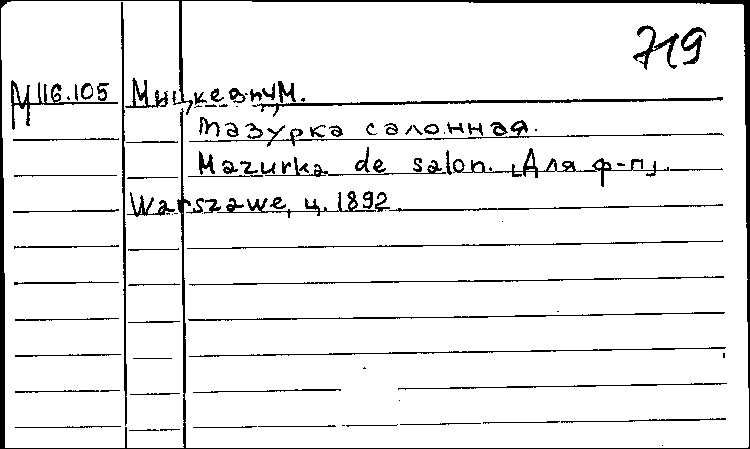 719
М 116.105 Мицкевич, М.
Мазурка салонная.
Mazurka de salon. [Для ф-п].
Warszawe, ц. 1892.